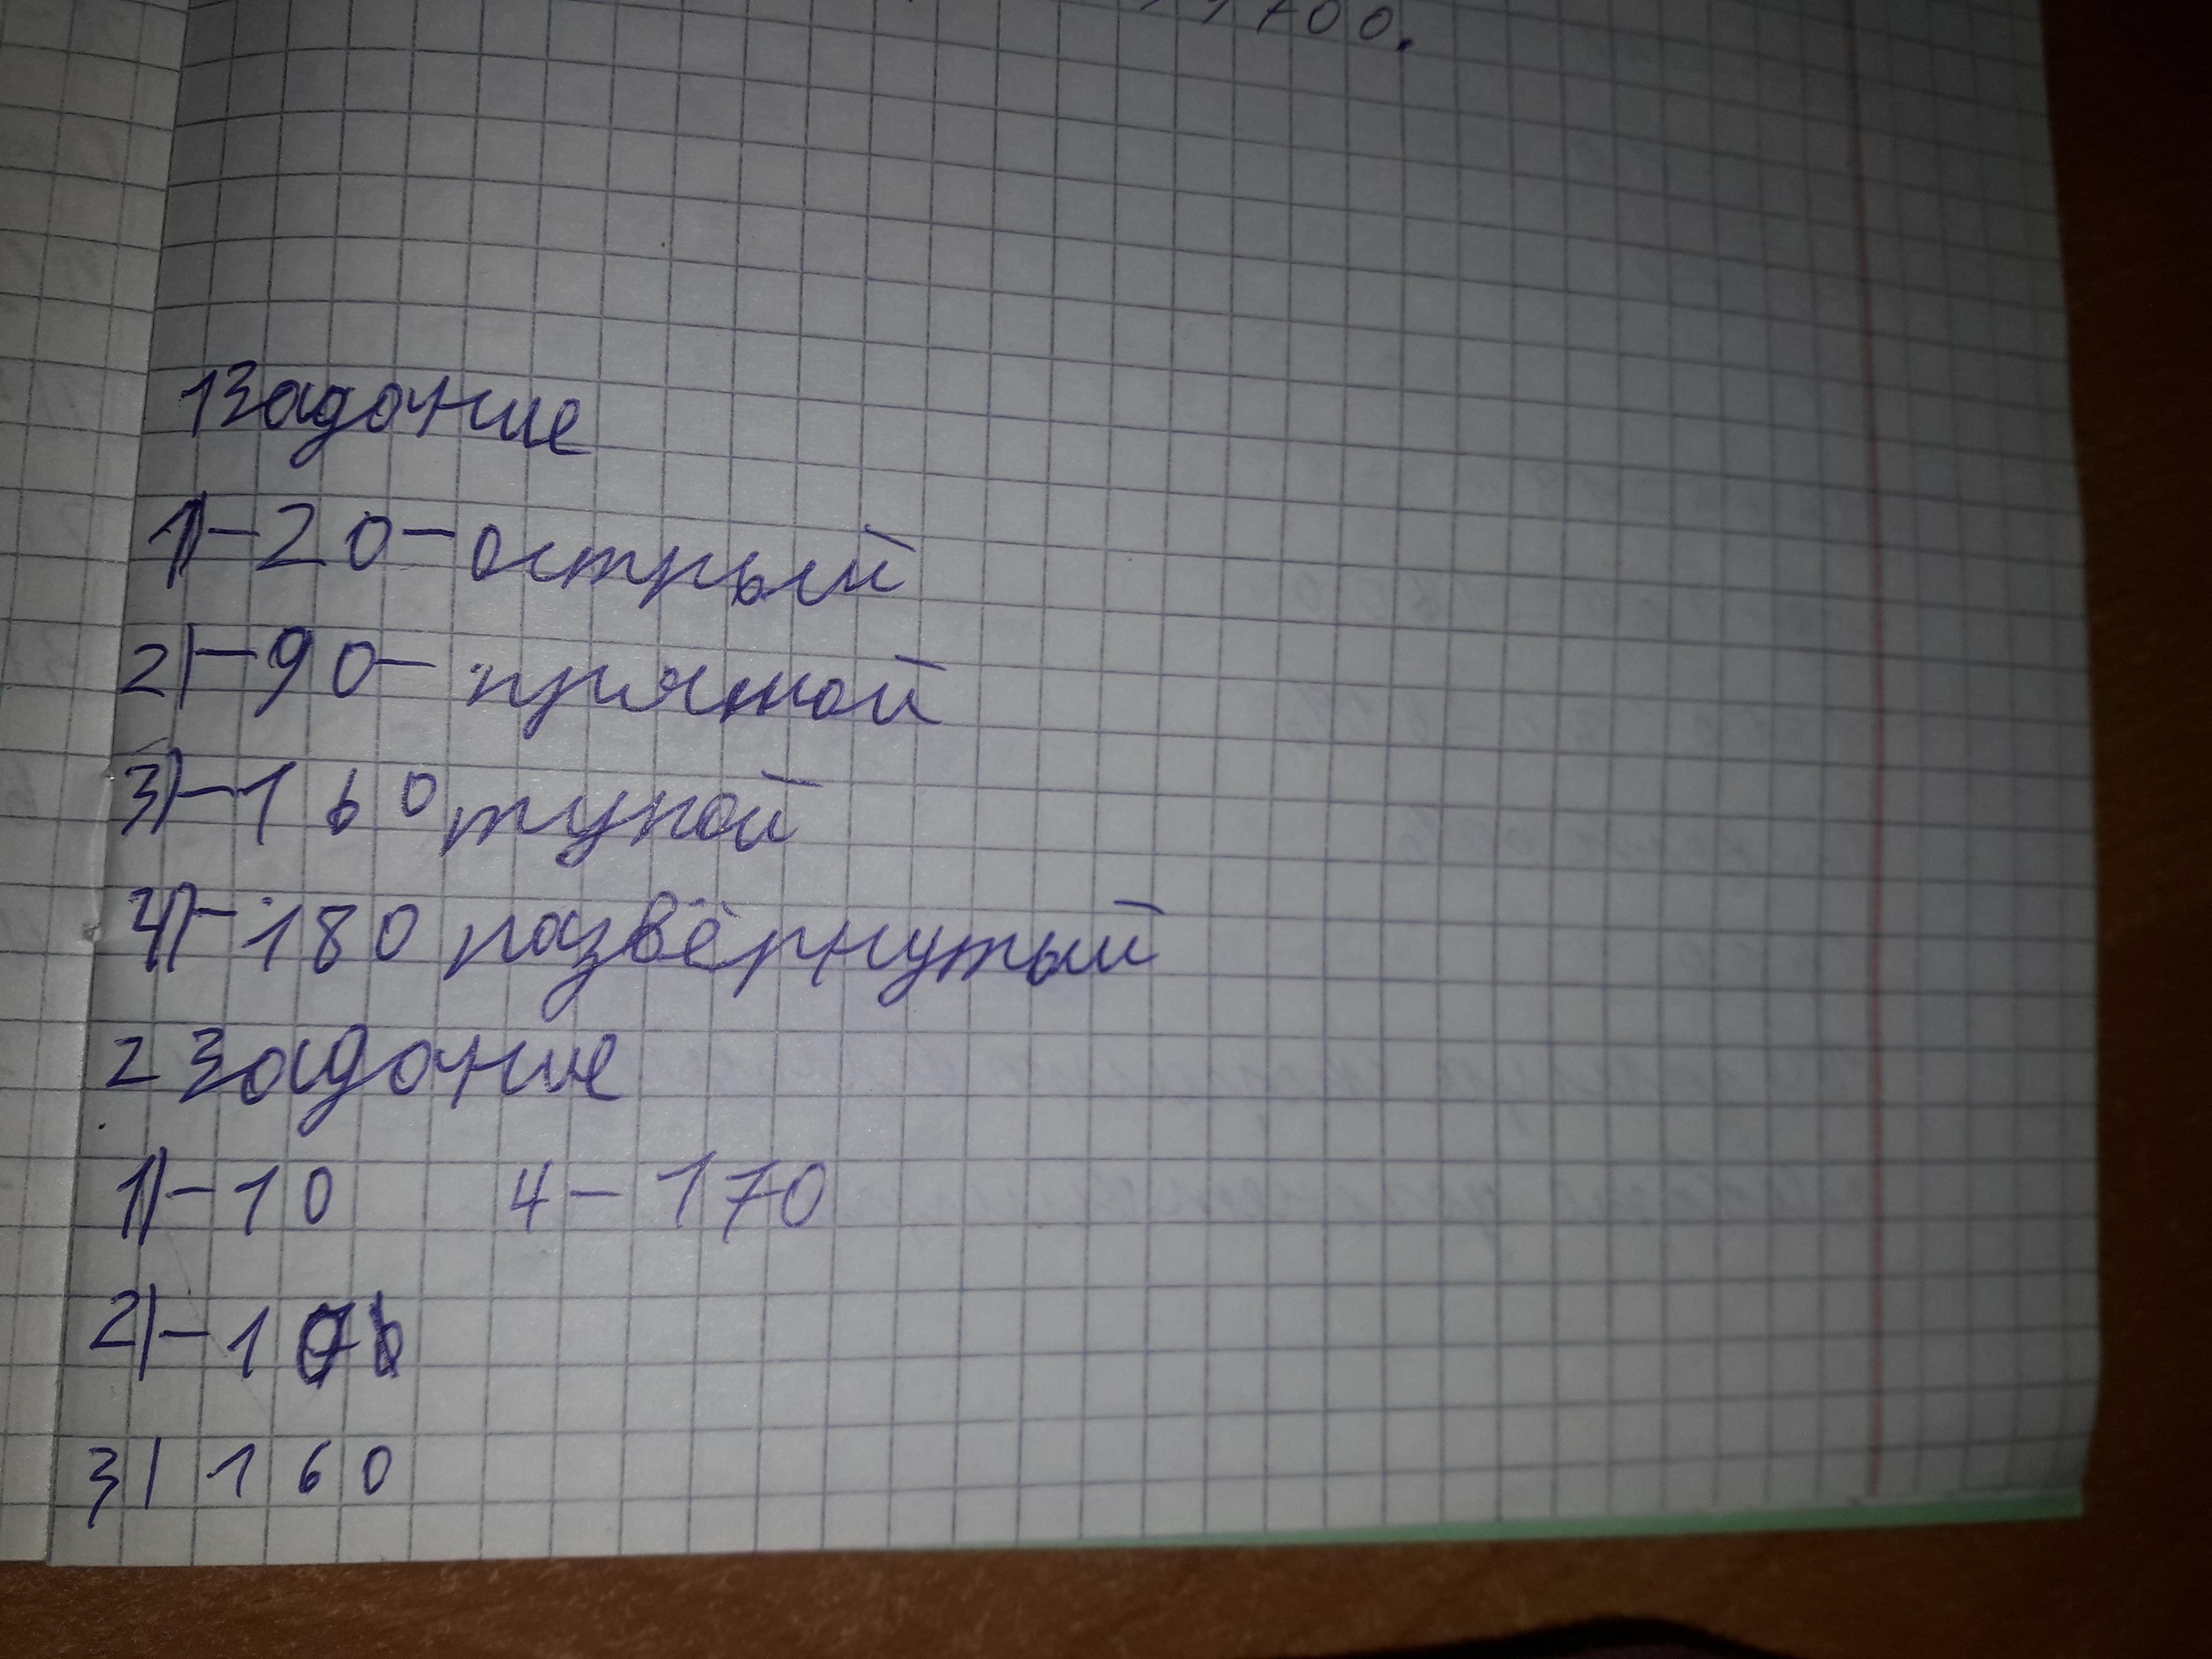 1 задание
1)-20-острый
2)-90-прямой
3)-160 тупой
4)-180 развёрнутый
2 задание
1)-10 4-170
2)-
3) 160